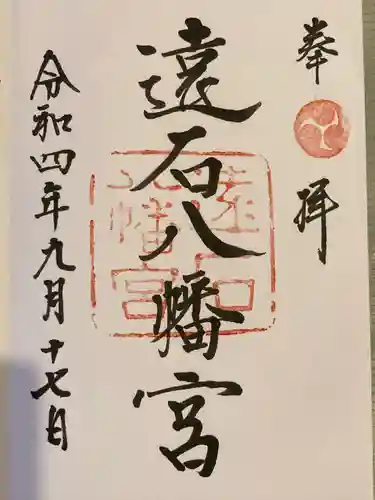 奉拝
遠石八幡宮
令和四年九月十七日
遠石
八幡宮